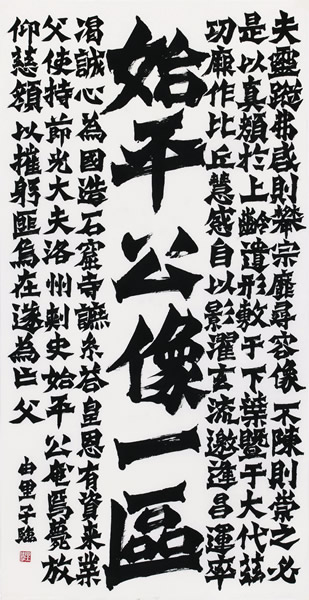 夫靈蹤弗感則攀宗靡尋容像不陳則崇之必
是以真顔於上齡遺形敷于下葉暨于大代茲
功厥作比丘慧感自以影濯玄流邀逢昌運率
始平公像一區
渴誠心為國造石窟寺系答皇恩有資來業
父使持節光大夫洛州刺史始平公奄焉薨放
仰慈顔以摧躬匪烏在遂為亡父
由里子臨